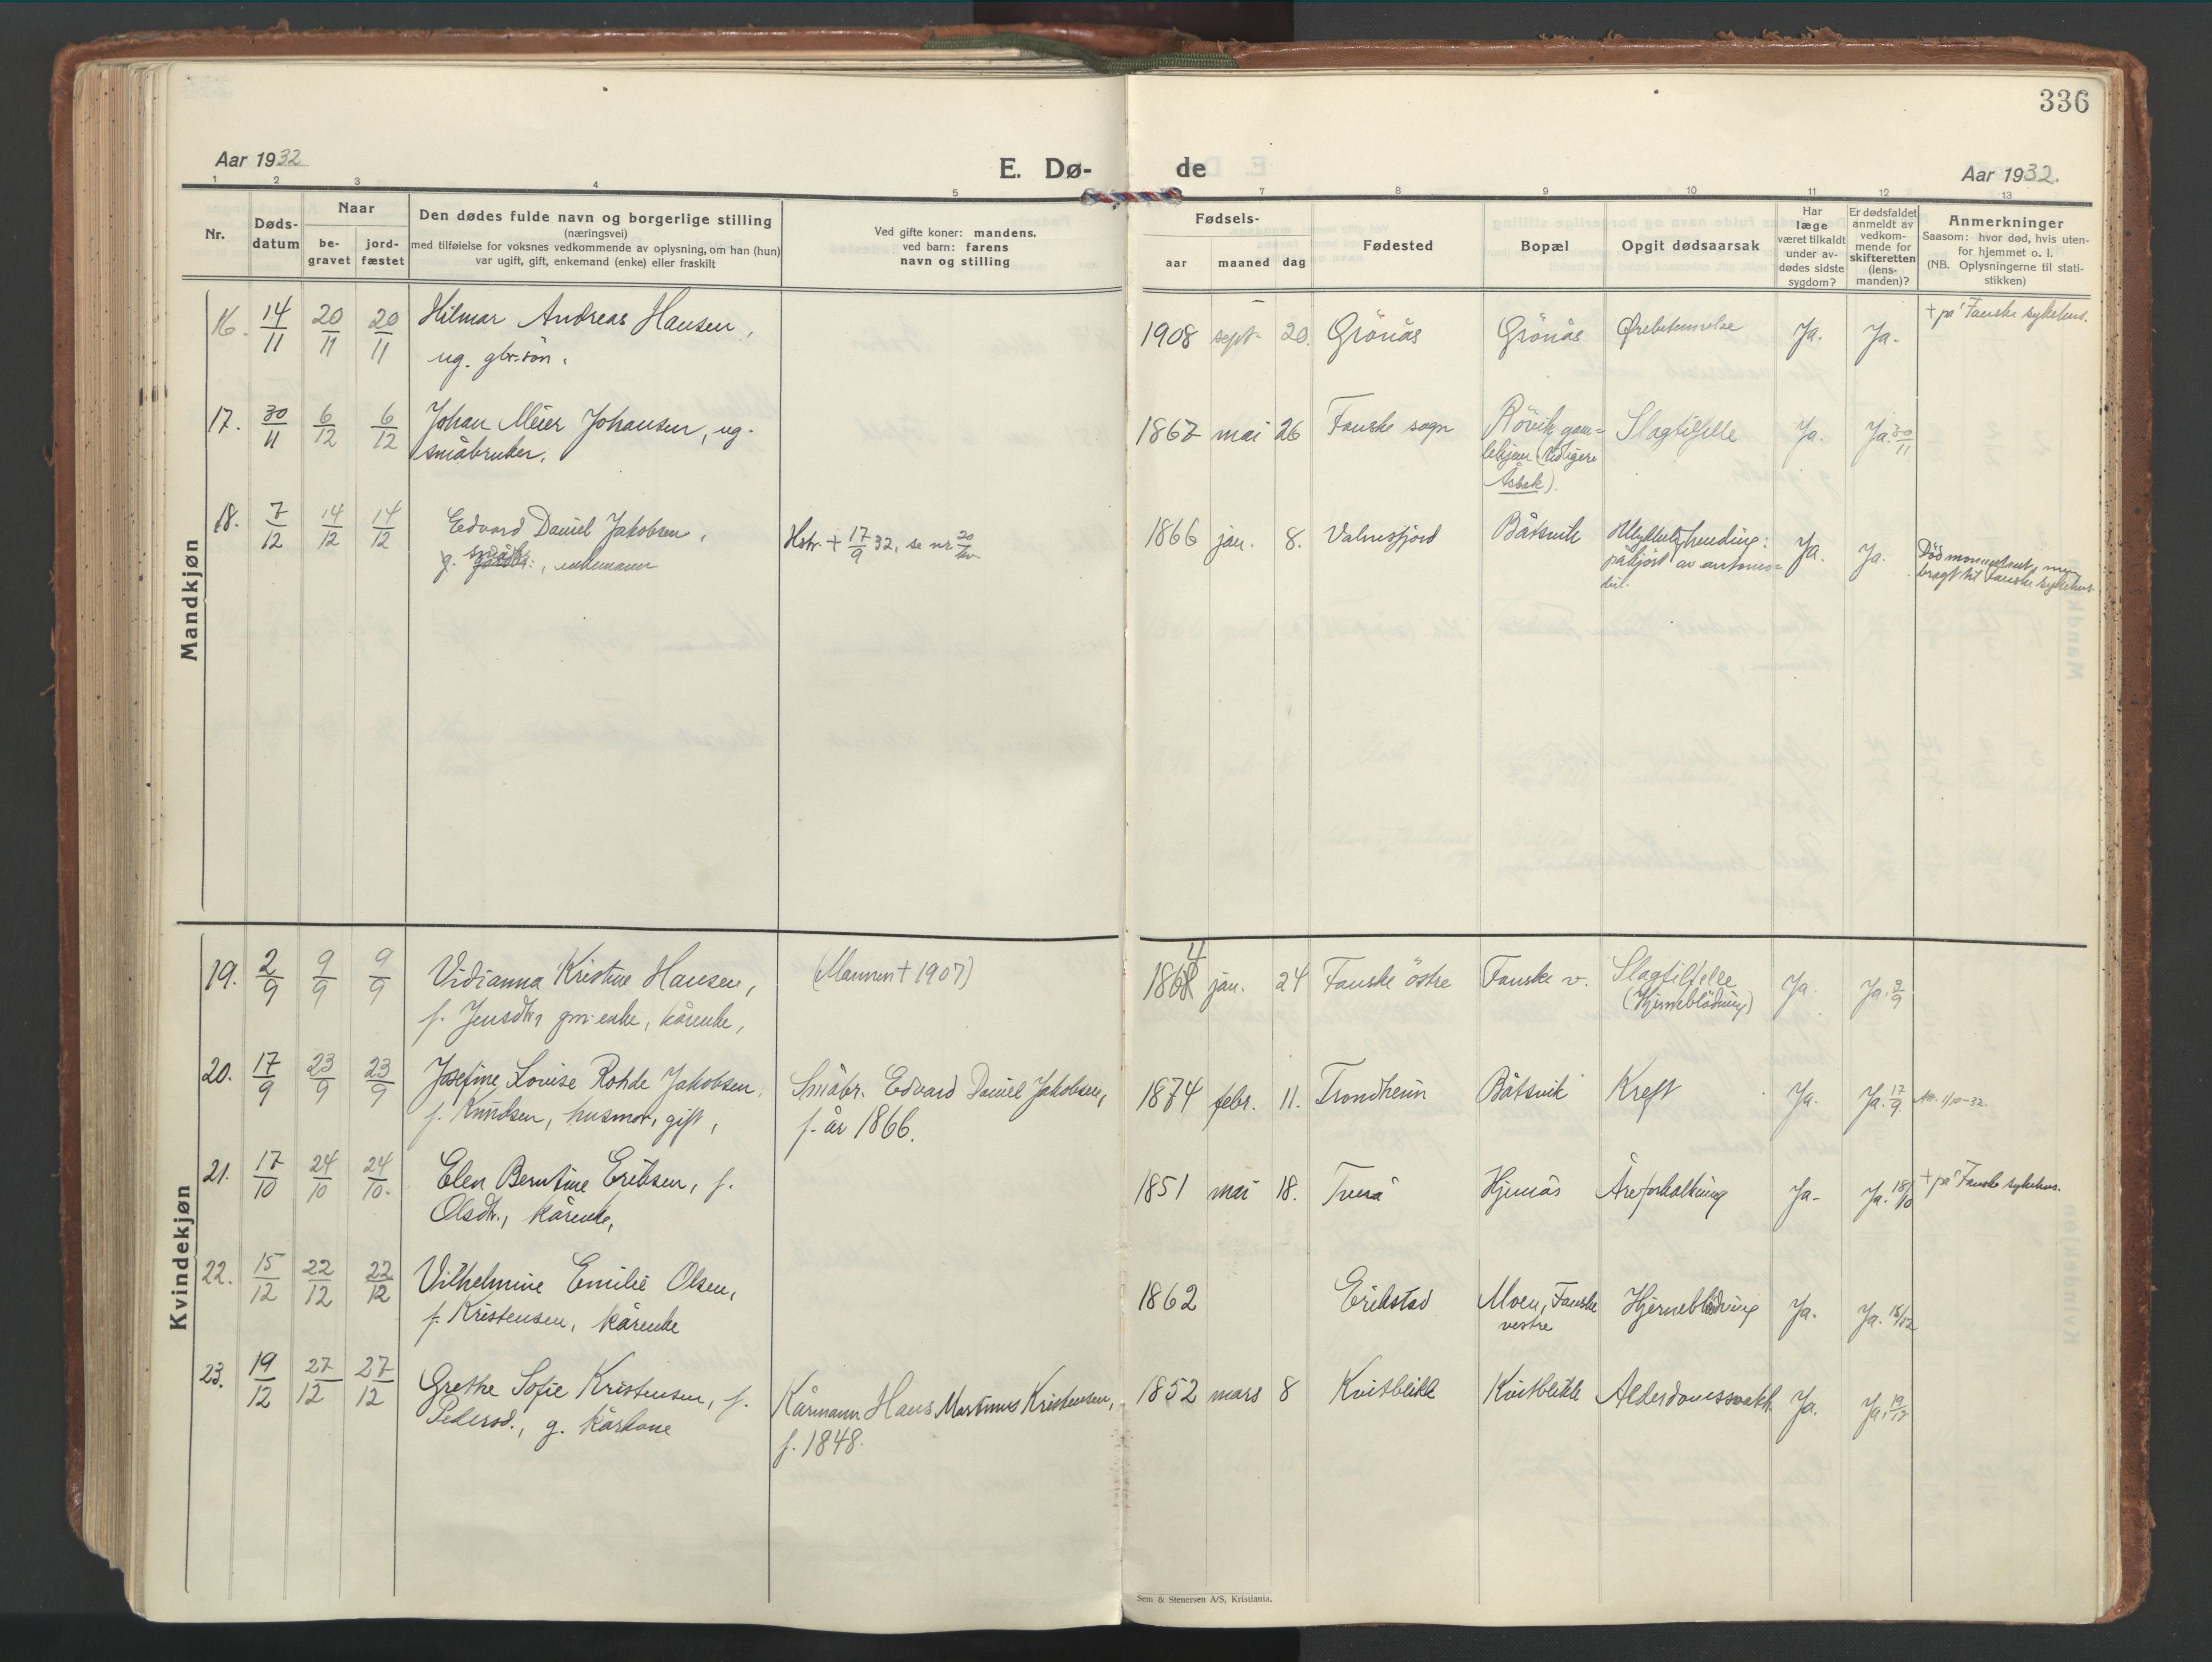 336
Aar 1932
E. Dø-
de
Aar 1932.
1 2 3 4 5 7 8 9 10 11 12 13
Nr.
Døds-
datum
Naar
be-
gravet
jord-
fæstet
Den dødes fulde navn og borgerlige stilling
(næringsvei)
med tilføielse for voksnes vedkommende av oplysning, om han (hun)
var ugift, gift, enkemand (enke) eller fraskilt
Ved gifte koner: mandens.
ved barn: farens
navn og stilling
Fødsels-
aar maaned dag
Fødested
Bopæl
Opgit dødsaarsak
Har
læge
været tilkaldt
under av-
dødes sidste
sygdom?
Er dødsfaldet
anmeldt av
vedkom-
mende for
skifteretten
(lens-
manden)?
Anmerkninger
Saasom: hvor død, hvis uten-
for hjemmet o. l.
(NB. Oplysningerne til stati-
stikken)
Mandkjøn
16. 14/11 20/11 20/11 Hilmar Andreas Hansen, 1908 sept. 20. Grönås Grönås Ørebetennelse Ja. Ja. + på Fauske sykehus.
ug. gbr.sön.
17. 30/11 6/12 6/12 Johan Meier Johansen, ug. 1867 mai 26 Fauske sogn Rövik gam= Slagtilfelle Ja. Ja. 30/11
småbruker. lehjem (tidligere
Åsbak).
18. 7/12 14/12 14/12 Edvard Daniel Jakobsen, Hstr. + 17/9 32, se nr 20/kv. 1866 jan. 8. Valnesfjord Båtsvik Ulykkeshending: Ja. Ja. Död momentant, men
g. småbr., enkemann påkjørt av automo= bragt til Fauske sykehus.
bil.
Kvindekjøn
19. 2/9 9/9 9/9 Vidianna Kristine Hansen, (Mannen + 1907) 1864 jan. 24 Fauske östre Fauske v. Slagtilfelle Ja. Ja. 3/9
f. Jensdtr, gm. enke, kårenke, (Hjerneblödning)
20. 17/9 23/9 23/9 Josefine Lovise Rohde Jakobsen, Småbr. Edvard Daniel Jakobsen, 1874 febr. 11. Trondheim Båtsvik Kreft Ja. Ja. 17/9 Att. 1/10-32.
f. Knudsen, husmor, gift, f. år 1866.
21. 17/10 24/10 24/10. Elen Berntine Eriksen, f. 1851 mai 18. Tverå Hjemås Åreforkalkning Ja. Ja. 18/10 + på Fauske sykehus.
Olsdtr., kårenke,
22. 15/12 22/12 22/12 Vilhelmine Emilie Olsen, 1862 Erikstad Moen, Fauske Hjerneblödning Ja. Ja. 16/12
f. Kristensen, kårenke vestre
23. 19/12 27/12 27/12 Grethe Sofie Kristensen, f. Kårmann Hans Martinus Kristensen, 1852 mars 8 Kvitblikk Kvitblikk Alderdomssvakh. Ja. Ja. 19/12
Pedersd., g. kårkone f. 1848.
Sem & Stenersen A/S, Kristiania.